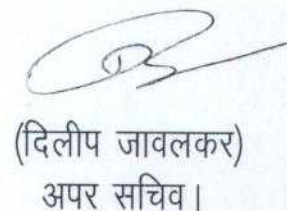 (दिलीप जावलकर)
अपर सचिव।